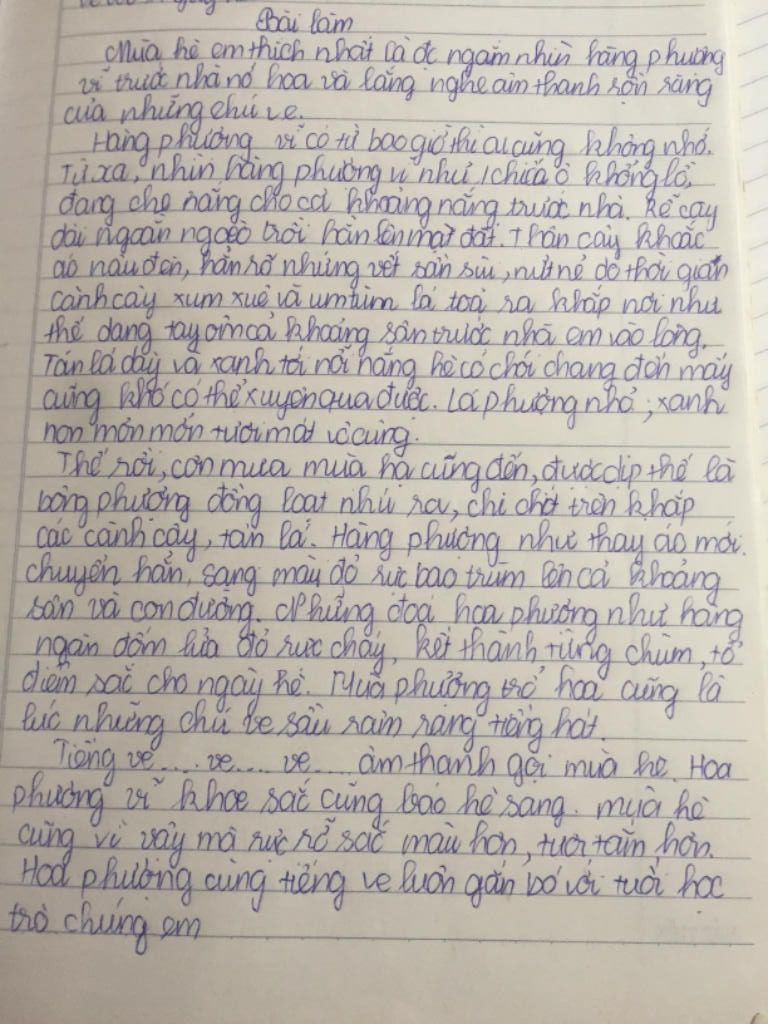 Bài làm
Mùa hè em thích nhất là đc ngắm nhìn hàng phượng
vĩ trước nhà nở hoa và lắng nghe âm thanh rộn ràng
của những chú ve.
Hàng phượng vĩ có từ bao giờ thì ai cũng không nhớ.
Từ xa, nhìn hàng phượng vĩ như 1 chiếc ô khổng lồ,
đang che nắng cho cả khoảng nắng trước nhà. Rễ cây
dài ngoằn ngoèo trồi hẳn lên mặt đất. Thân cây khoác
áo nâu đen, hằn rõ những vết sần sùi, nứt nẻ do thời gian
cành cây xum xuê và um tùm lá toả ra khắp nơi như
thể dang tay ôm cả khoảng sân trước nhà em vào lòng.
Tán lá dày và xanh tới nỗi nắng hè có chói chang đến mấy
cũng khó có thể xuyên qua được. Lá phượng nhỏ, xanh
non mơn mởn tươi mát vô cùng.
Thế rồi, cơn mưa mùa hạ cũng đến, được dịp thế là
bông phượng đồng loạt nhú ra, chi chít trên khắp
các cành cây, tán lá. Hàng phượng như thay áo mới.
chuyển hẳn sang màu đỏ rực bao trùm lên cả khoảng
sân và con đường. Những đoá hoa phượng như hàng
ngàn đốm lửa đỏ rực cháy, kết thành từng chùm, tô
điểm sắc cho ngày hè. Mùa phượng trổ hoa cũng là
lúc những chú ve sầu râm ran tiếng hát.
Tiếng ve .... ve .... ve .... âm thanh gọi mùa hè. Hoa
phượng vĩ khoe sắc cũng báo hè sang. mùa hè
cũng vì vậy mà rực rỡ sắc màu hơn, tươi tắn hơn.
Hoa phượng cùng tiếng ve luôn gắn bó với tuổi học
trò chúng em